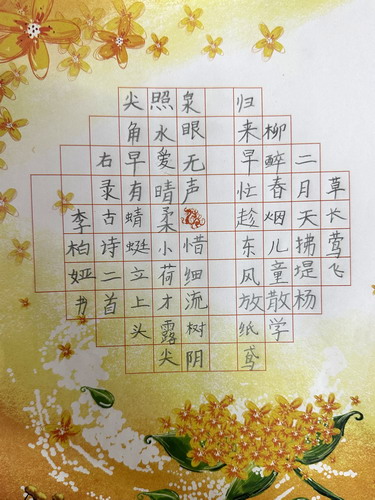 草长莺飞
二月天拂堤杨
柳醉春烟儿童散学
归来早忙趁东风放纸鸢
泉眼无声惜细流树阴
照水爱晴柔小荷才露尖
尖角早有蜻蜓立上头
右录古诗二首
李柏娅书